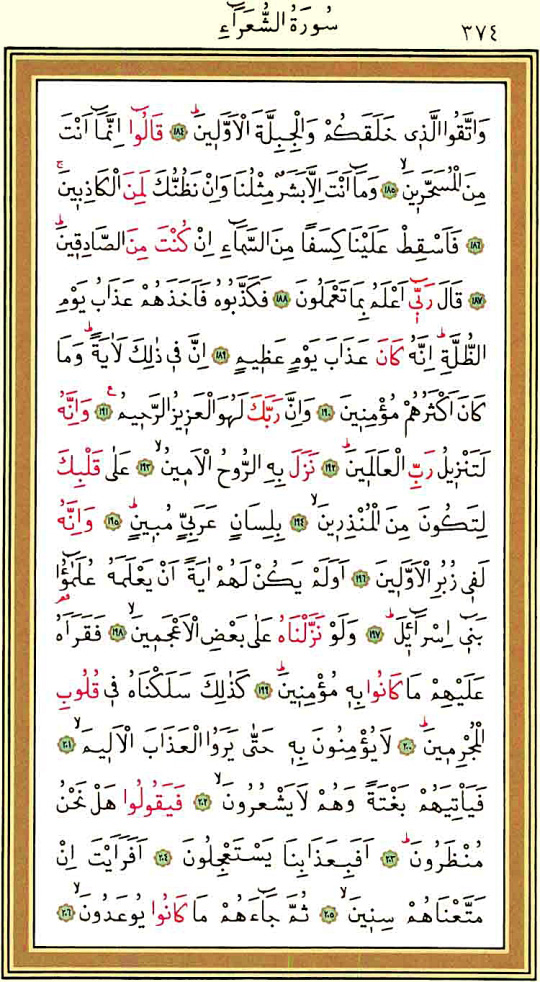 سُورَةُ الشُّعَرَٓاءِ ٣٧٤
وَاتَّقُوا الَّذ۪ي خَلَقَكُمْ وَالْجِبِلَّةَ الْاَوَّل۪ينَۜ ﴿١٨٤﴾ قَالُٓوا اِنَّمَٓا اَنْتَ
مِنَ الْمُسَحَّر۪ينَۙ ﴿١٨٥﴾ وَمَٓا اَنْتَ اِلَّا بَشَرٌ مِثْلُنَا وَاِنْ نَظُنُّكَ لَمِنَ الْكَاذِب۪ينَۚ
﴿١٨٦﴾ فَاَسْقِطْ عَلَيْنَا كِسَفًا مِنَ السَّمَٓاءِ اِنْ كُنْتَ مِنَ الصَّادِق۪ينَۜ
﴿١٨٧﴾ قَالَ رَبّ۪ٓي اَعْلَمُ بِمَا تَعْمَلُونَ ﴿١٨٨﴾ فَكَذَّبُوهُ فَاَخَذَهُمْ عَذَابُ يَوْمِ
الظُّلَّةِۜ اِنَّهُ كَانَ عَذَابَ يَوْمٍ عَظ۪يمٍ ﴿١٨٩﴾ اِنَّ ف۪ي ذٰلِكَ لَاٰيَةًۜ وَمَا
كَانَ اَكْثَرُهُمْ مُؤْمِن۪ينَ ﴿١٩٠﴾ وَاِنَّ رَبَّكَ لَهُوَ الْعَز۪يزُ الرَّح۪يمُ۟ ﴿١٩١﴾ وَاِنَّهُ
لَتَنْز۪يلُ رَبِّ الْعَالَم۪ينَۜ ﴿١٩٢﴾ نَزَلَ بِهِ الرُّوحُ الْاَم۪ينُۙ ﴿١٩٣﴾ عَلٰى قَلْبِكَ
لِتَكُونَ مِنَ الْمُنْذِر۪ينَۙ ﴿١٩٤﴾ بِلِسَانٍ عَرَبِيٍّ مُب۪ينٍۜ ﴿١٩٥﴾ وَاِنَّهُ
لَف۪ي زُبُرِ الْاَوَّل۪ينَ ﴿١٩٦﴾ اَوَلَمْ يَكُنْ لَهُمْ اٰيَةً اَنْ يَعْلَمَهُ عُلَمٰٓؤُ۬ا
بَن۪ٓي اِسْرَٓائ۪لَۜ ﴿١٩٧﴾ وَلَوْ نَزَّلْنَاهُ عَلٰى بَعْضِ الْاَعْجَم۪ينَۙ ﴿١٩٨﴾ فَقَرَاَهُ
عَلَيْهِمْ مَا كَانُوا بِه۪ مُؤْمِن۪ينَۜ ﴿١٩٩﴾ كَذٰلِكَ سَلَكْنَاهُ ف۪ي قُلُوبِ
الْمُجْرِم۪ينَۜ ﴿٢٠٠﴾ لَا يُؤْمِنُونَ بِه۪ حَتّٰى يَرَوُا الْعَذَابَ الْاَل۪يمَۙ ﴿٢٠١﴾
فَيَاْتِيَهُمْ بَغْتَةً وَهُمْ لَا يَشْعُرُونَۙ ﴿٢٠٢﴾ فَيَقُولُوا هَلْ نَحْنُ
مُنْظَرُونَۜ ﴿٢٠٣﴾ اَفَبِعَذَابِنَا يَسْتَعْجِلُونَ ﴿٢٠٤﴾ اَفَرَاَيْتَ اِنْ
مَتَّعْنَاهُمْ سِن۪ينَۙ ﴿٢٠٥﴾ ثُمَّ جَٓاءَهُمْ مَا كَانُوا يُوعَدُونَۙ ﴿٢٠٦﴾